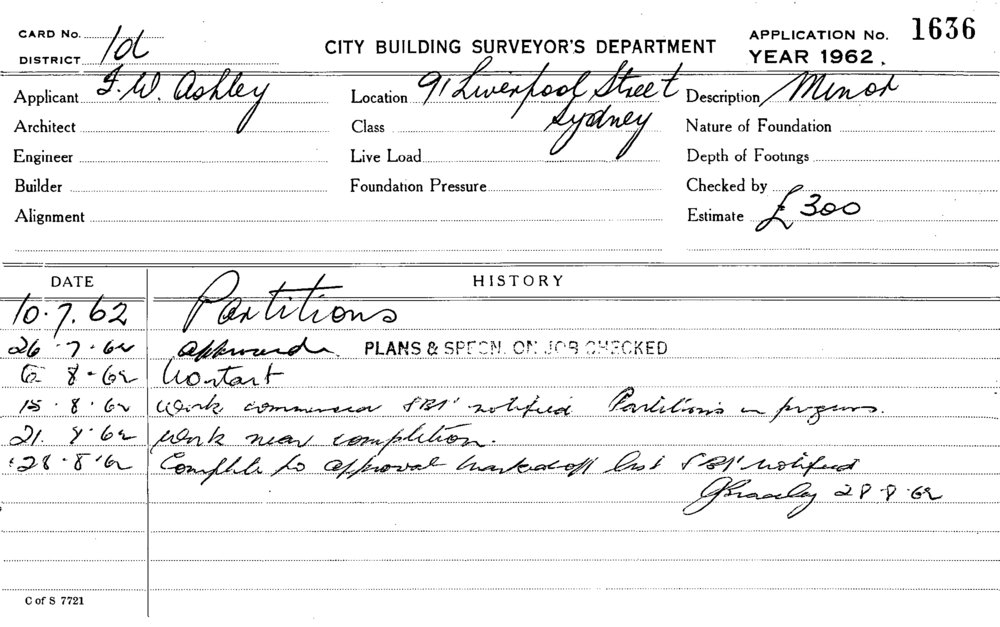 CARD No. 1d
DISTRICT
CITY BUILDING SURVEYOR'S DEPARTMENT
APPLICATION No. 1636
YEAR 1962.
Applicant F. W. Ashley
Location 91 Liverpool Street
Sydney
Description Minor
Architect
Class
Nature of Foundation
Engineer
Live Load
Depth of Footings
Builder
Foundation Pressure
Checked by
Alignment
Estimate £300
DATE HISTORY
10.7.62 Partitions
26.7.62 approved. PLANS & SPECN. ON JOB CHECKED
6 8-62 No start
15.8.62 Work commenced notified Partitions in progress.
21.8.62 Work near completion.
28.8.62 Complete to approval marked off list notified
28.8.62
C of S 7721